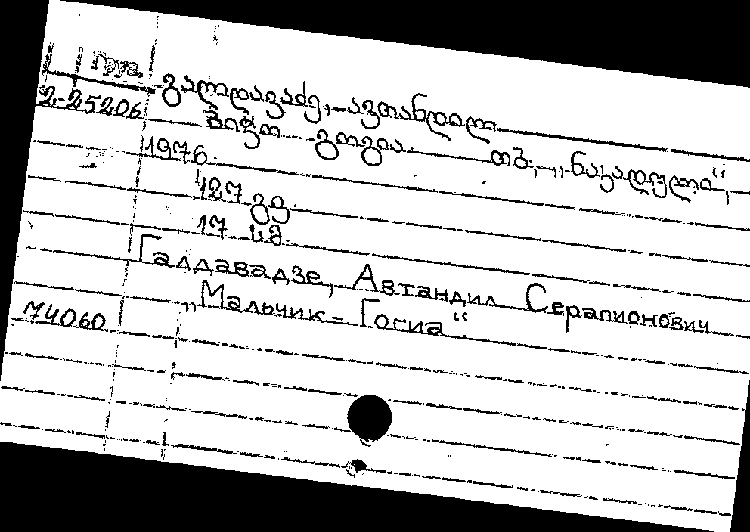 Груз.
გალდავაძე, ავთანდილ
2-25206 ბიჭი გოგია. თბ., „ნაკადული“,
1976.
427 გვ.
17 სმ.
Галдавадзе, Автандил Серапионович
„Мальчик – Гогиа“
74060